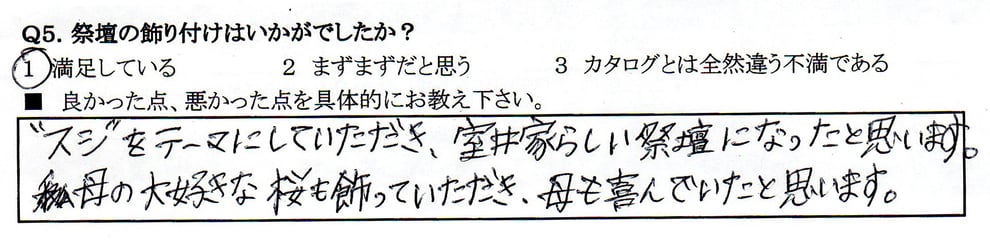 Q5. 祭壇の飾り付けはいかがでしたか？
1 満足している 2 まずまずだと思う 3 カタログとは全然違う不満である
■ 良かった点、悪かった点を具体的にお教え下さい。
"スジ"をテーマにしていただき、室井家らしい祭壇になったと思います。
母の大好きな桜も飾っていただき、母も喜んでいたと思います。